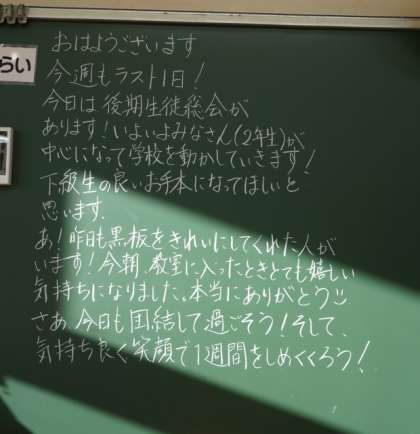 おはようございます
らい
今週もラスト1日!
今日は後期生徒総会が
あります!いよいよみなさん(2年生)が
中心になって学校を動かしていきます!
下級生の良いお手本になってほしいと
思います.
あ!昨日も黒板をきれいにしてくれた人が
います!今朝、教室に入ったときとても嬉しい
気持ちになりました。本当にありがとう
さあ、今日も団結して過ごそう!そして、
気持ち良く笑顔で1週間をしめくくろう!